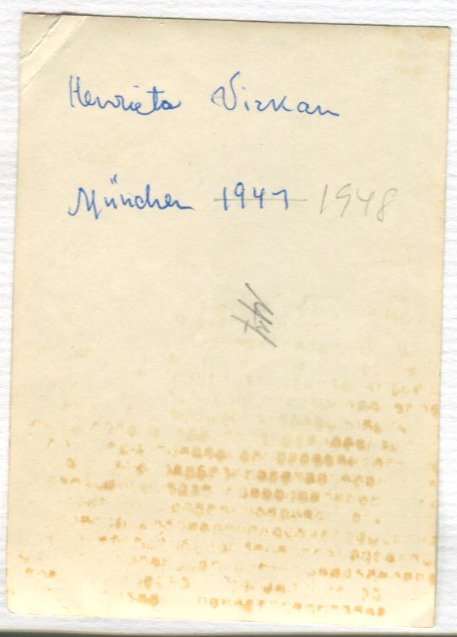 Henrieta Virkan
München 1947 1948